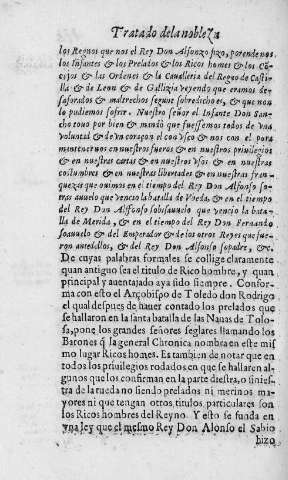 Tratado de la nobleza
los Regnos que nos el Rey Don Alfonzo fizo, por ende nos
los Infantes & los Prelatos & los Ricos homes & los Cõ-
cejos & las Ordenes & la Cavalleria del Regno de Casti-
lla & de Leon & de Gallizia veyendo que eramos de-
saforados & maltrechos segunt sobredicho es, & que non
lo podiemos sofrir. Nuestro señor el Infante Don San-
cho tovo por bien & mandò que fuessemos todos de vna
voluntad & de vn coraçon el con vsco & nos con el para
mantenernos en nuestros fueros & en nuestros privilegios
& en nuestras cartas & en nuestros vsos & en nuestras
costumbres & en nuestras libertades & en nuestras fran-
quezas que ouimos en el tiempo del Rey Don Alfonso so-
tras auuelo que vencio la batalla de Vbeda, & en el tiempo
del Rey Don Alfonso sobisauuelo que vencio la bata-
lla de Merida, & en el tiempo del Rey Don Fernando
so auuelo & del Emperador & de los otros Reyes que fue-
ron ante dellos, & del Rey Don Alfonso so padre, &c.
De cuyas palabras formales se collige claramente
quan antiguo sea el titulo de Rico hombre, y quan
principal y auentajado aya sido siempre. Confor-
ma con esto el Arçobispo de Toledo don Rodrigo
el qual despues de hauer contado los prelados que
se hallaron en la santa batalla de las Nauas de Tolo-
sa, pone los grandes señores seglares llamando los
Barones q̃ la general Chronica nombra en este mis
mo lugar Ricos homes. Es tambien de notar que en
todos los priuilegios rodados en que se hallaren al-
gunos que los confirman en la parte diestra, o sinies-
tra de la rueda no siendo prelados ni merinos ma-
yores ni que tengan otros titulos particulares son
los Ricos hombres del Reyno. Y esto se funda en
vna ley que el mesmo Rey Don Alonso el Sabio
hizo